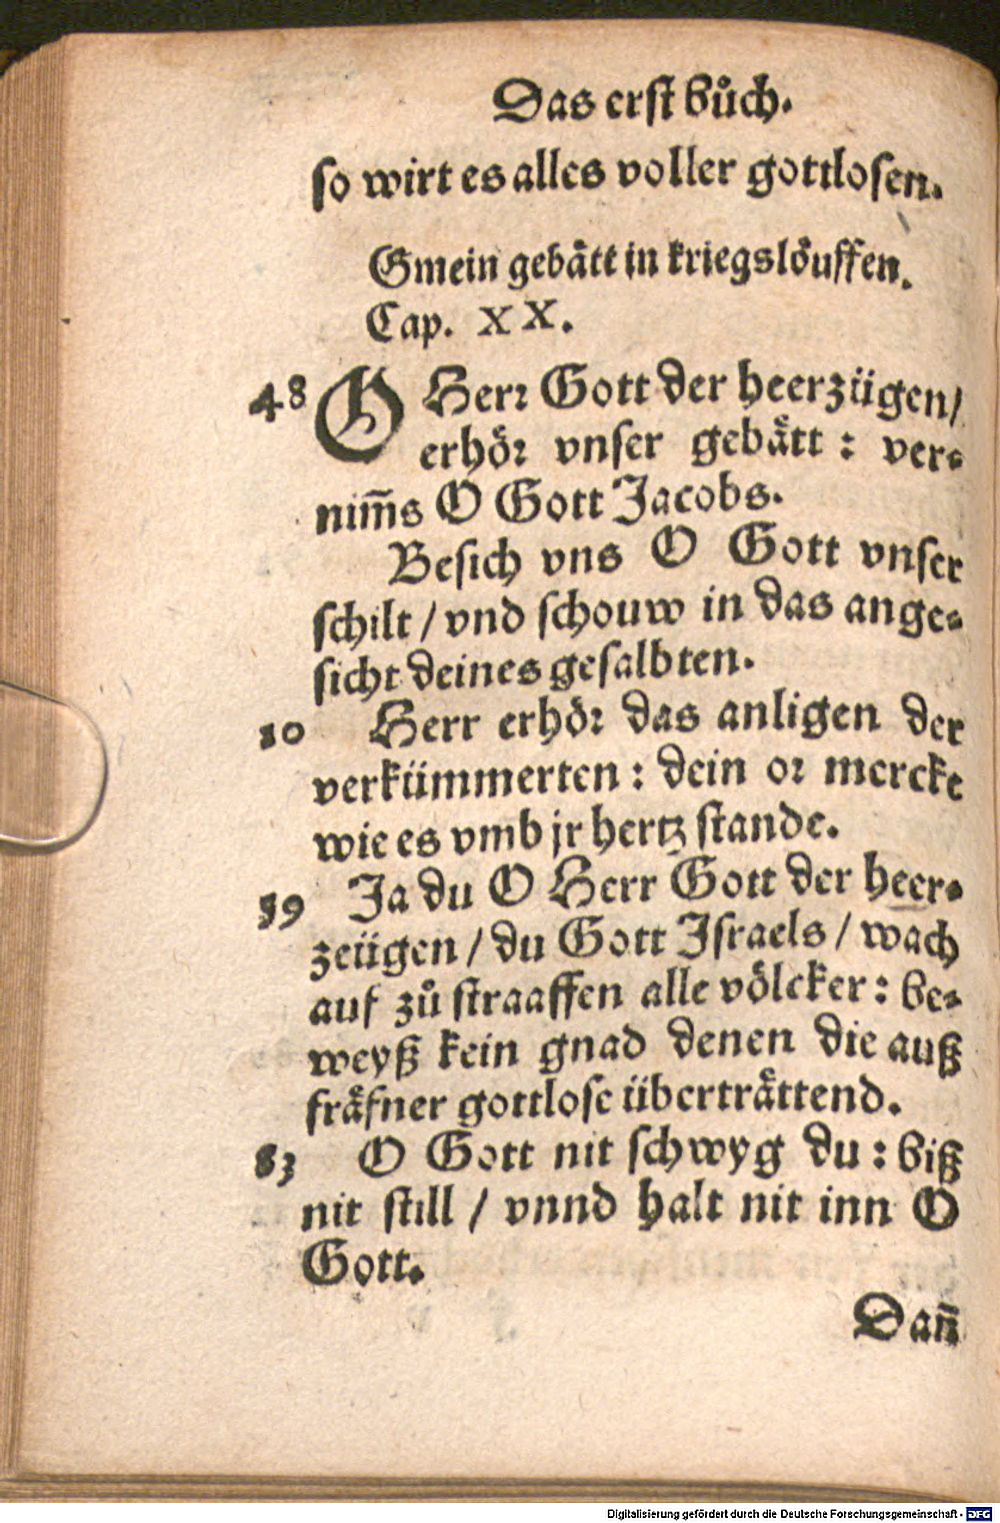 Das erst bůch.
so wirt es alles voller gottlosen.
Gmein gebätt in kriegslöuffen.
Cap. XX.
48 O Herr Gott der heerzügen/
erhör vnser gebätt: ver-
nim̄s O Gott Jacobs.
Besich vns O Gott vnser
schilt / vnd schouw in das ange-
sicht deines gesalbten.
10 Herr erhör das anligen der
verkümmerten: dein or mercke
wie es vmb jr hertz stande.
59 Ja du O Herr Gott der heer-
zeügen / du Gott Israels / wach
auf zů straaffen alle völcker: be-
weyß kein gnad denen die auß
fräfner gottlose überträttend.
83 O Gott nit schwyg du: biß
nit still / vnnd halt nit inn O
Gott.
Dañ
Digitalisierung gefördert durch die Deutsche Forschungsgemeinschaft - DFG